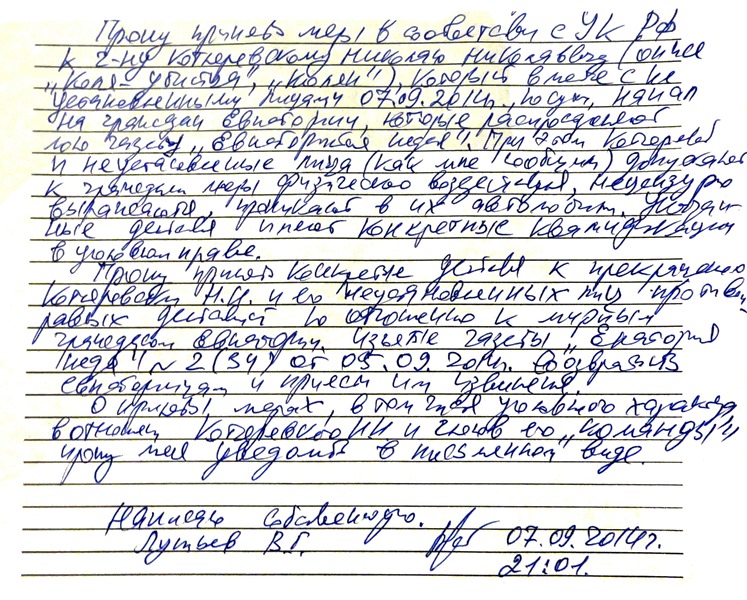 Прошу принять меры в соответствии с УК РФ
к г-ну Котеревскому Николаю Николаевичу (он же
„Коля-убийца", „Колян"), который вместе с не
установленными лицами 07.09.2014г. нанал
на граждан Евпатории, которые распространяют
мою газету „Евпаторийская неделя". При этом Котеревский
и неустановленные лица (как мне сообщили) допускают
к гражданам меры физического воздействия, нецензурно
выражаются, в их автомобили. Указан
ные действия имеют конкретные квалификации
в уголовном праве.
Прошу принять конкретные действия к прекращению
Котеревским Н.Н. и его неустановленных лиц противо
равных действий по отношению к мирным
гражданам Евпатории. Изъятые газеты „Евпаторийская
неделя" №2 (34) от 05.09.2014г. возвратить
евпаторийцам и принести им извинения.
О принятых мерах, в том числе уголовного характера
в отношении Котеревского НН и членов его „команды"
прошу меня уведомить в письменном виде.
Написано собственноручно.
Лутьев В.Г. 07.09.2014г.
21:01.